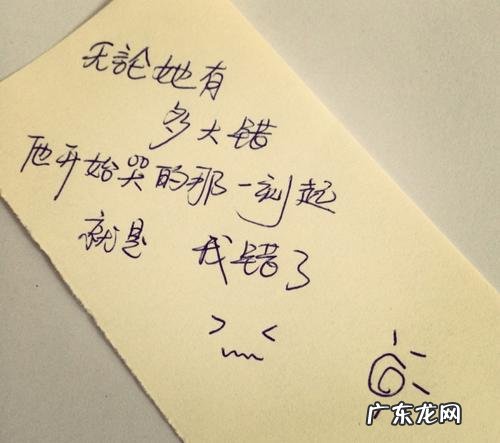 无論她有
多大错
从她开始哭的那一刻起
就是 我错了
广东龙网